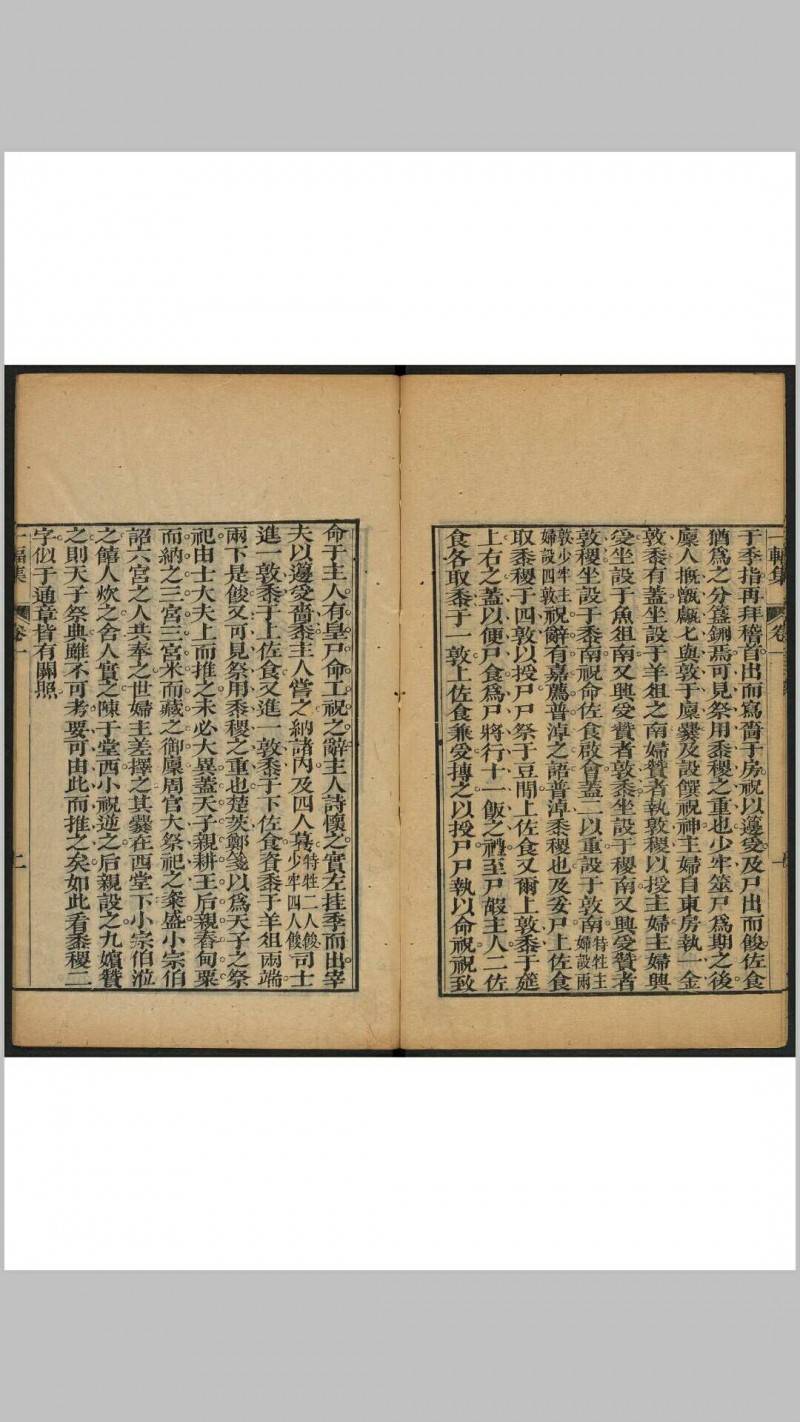 一輻集 卷一 一
于季指再拜稽首出而寫嗇于房祝以籩受及尸出而餕佐食
猶為之分簋鉶焉可見祭用黍稷之重也少牢筮尸為期之後
廩人摡甑甗匕與敦于廩爨及設饌祝神主婦自東房執一金
敦黍有蓋坐設于羊俎之南婦贊者執敦稷以授主婦主婦興
受坐設于魚俎南又興受贊者敦黍坐設于稷南又興受贊者
敦稷坐設于黍南祝命佐食啟會蓋二以重設于敦南特牲主婦設兩
敦少牢主婦設四敦祝辭有嘉薦普淖之語普淖黍稷也及妥尸上佐食
取黍稷于四敦以授尸尸祭于豆間上佐食又爾上敦黍于筵
上右之蓋以便尸食為尸將行十一飯之禮至尸嘏主人二佐
食各取黍于一敦上佐食兼受搏之以授尸尸執以命祝祝致
命于主人有皇尸命工祝之辭主人詩懷之實左挂季而出宰
夫以籩受嗇黍主人嘗之納諸內及四人餕特牲二人餕少牢四人餕司士
進一敦黍于上佐食又進一敦黍于下佐食資黍于羊俎兩端
兩下是餕又可見祭用黍稷之重也楚茨鄭箋以為天子之祭
祀由士大夫上而推之未必大異蓋天子親耕王后親舂甸粟
而納之三宮三宮米而藏之御廩周官大祭祀之粢盛小宗伯
詔六宮之人共奉之世婦主差擇之其爨在西堂下小宗伯涖
之饎人炊之舍人實之陳于堂西小祝逆之后親設之九嬪贊
之則天子祭典雖不可考要可由此而推之矣如此看黍稷二
字似于通章皆有關照
一輻集 卷一 二